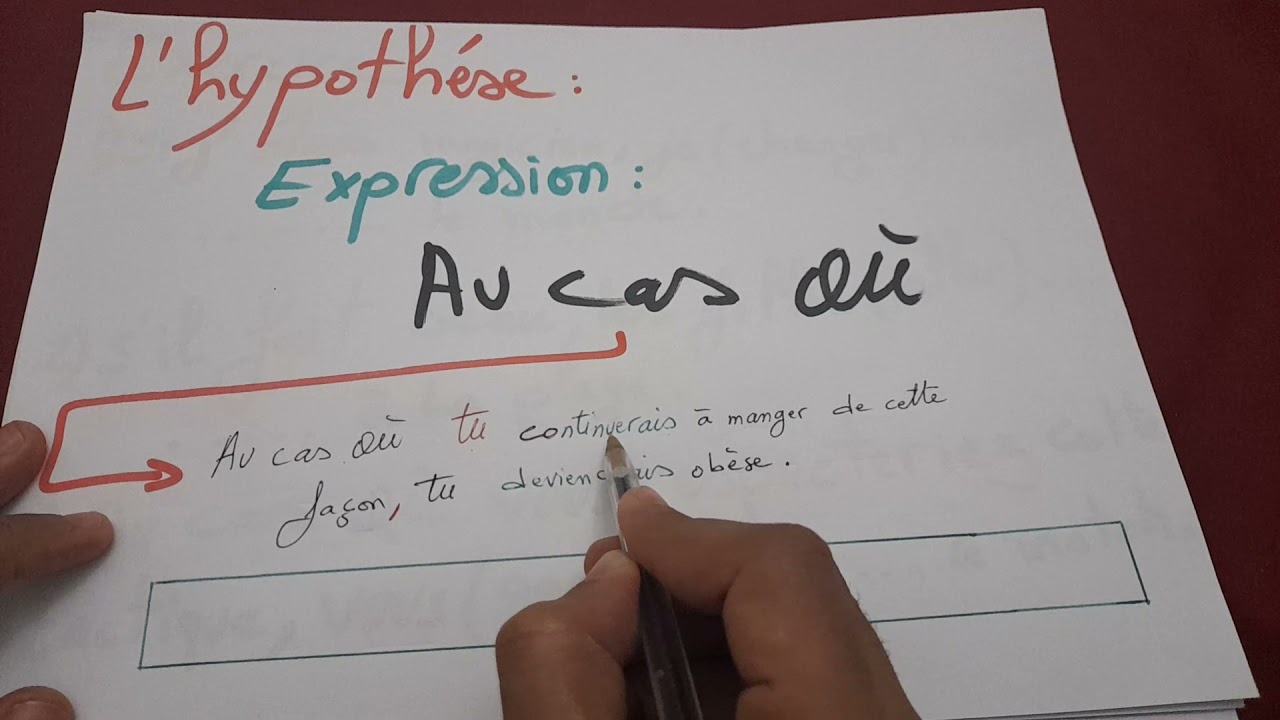 L'hypothése :
Expression :
Au cas où
Au cas où tu continuerais à manger de cette
façon, tu deviendrais obèse.